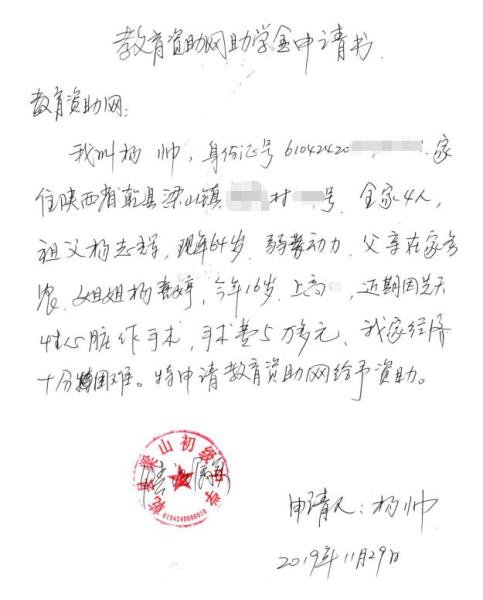 教育资助网助学金申请书
教育资助网:
我叫杨帅,身份证号61042420 .家
住陕西省乾县梁山镇 村 号.全家4人,
祖父杨志 ,现年64岁.弱劳动力,父亲在家务
农.姐姐杨 婷,今年16岁.上高 ,近期因先天
性心脏作手术,手术费5万多元、我家经济
十分困难。特申请教育资助网给予资助。
情况属实
乾县梁山初级中学
6104240000010
申请人:杨帅
2019年11月29日